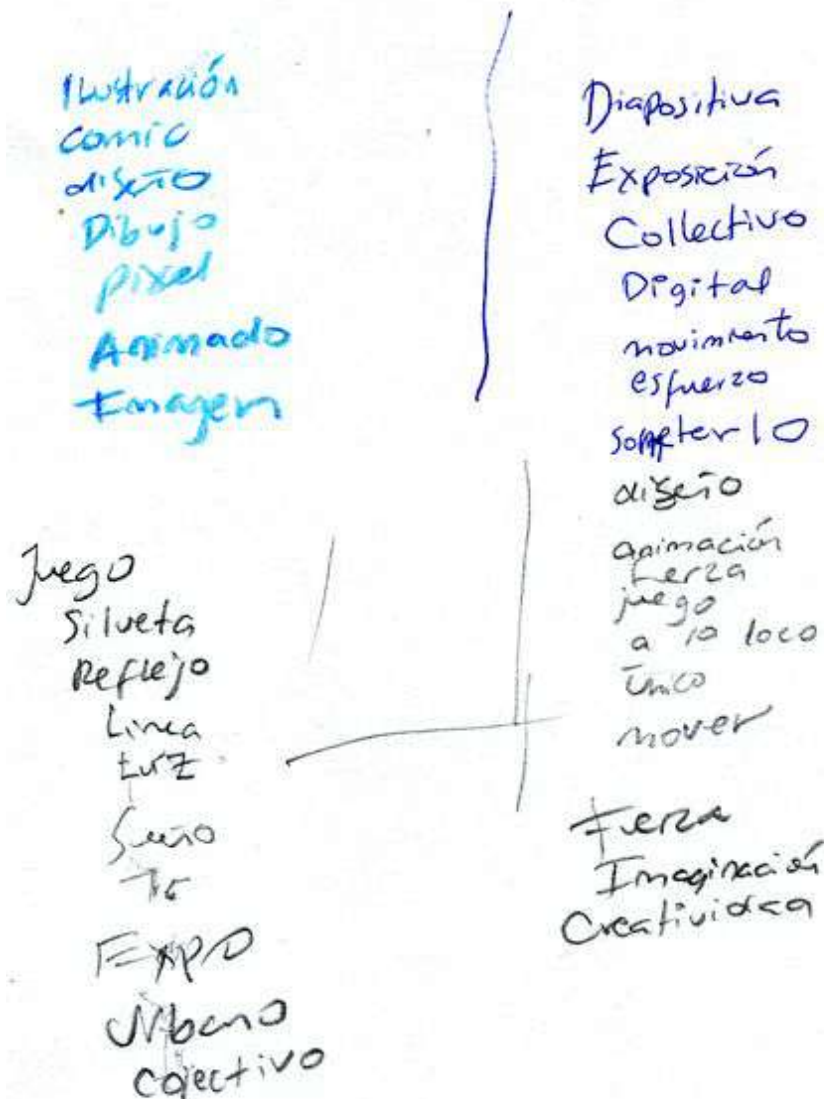 Ilustración
comic
diseño
Dibujo
pixel
Animado
Imagen
Juego
Silueta
Reflejo
Linea
Luz
Sueño
Expo
Urbano
colectivo
Diapositiva
Exposición
Collectivo
Digital
movimiento
esfuerzo
diseño
animación
juego
a lo loco
único
mover
Imaginación
Creatividad